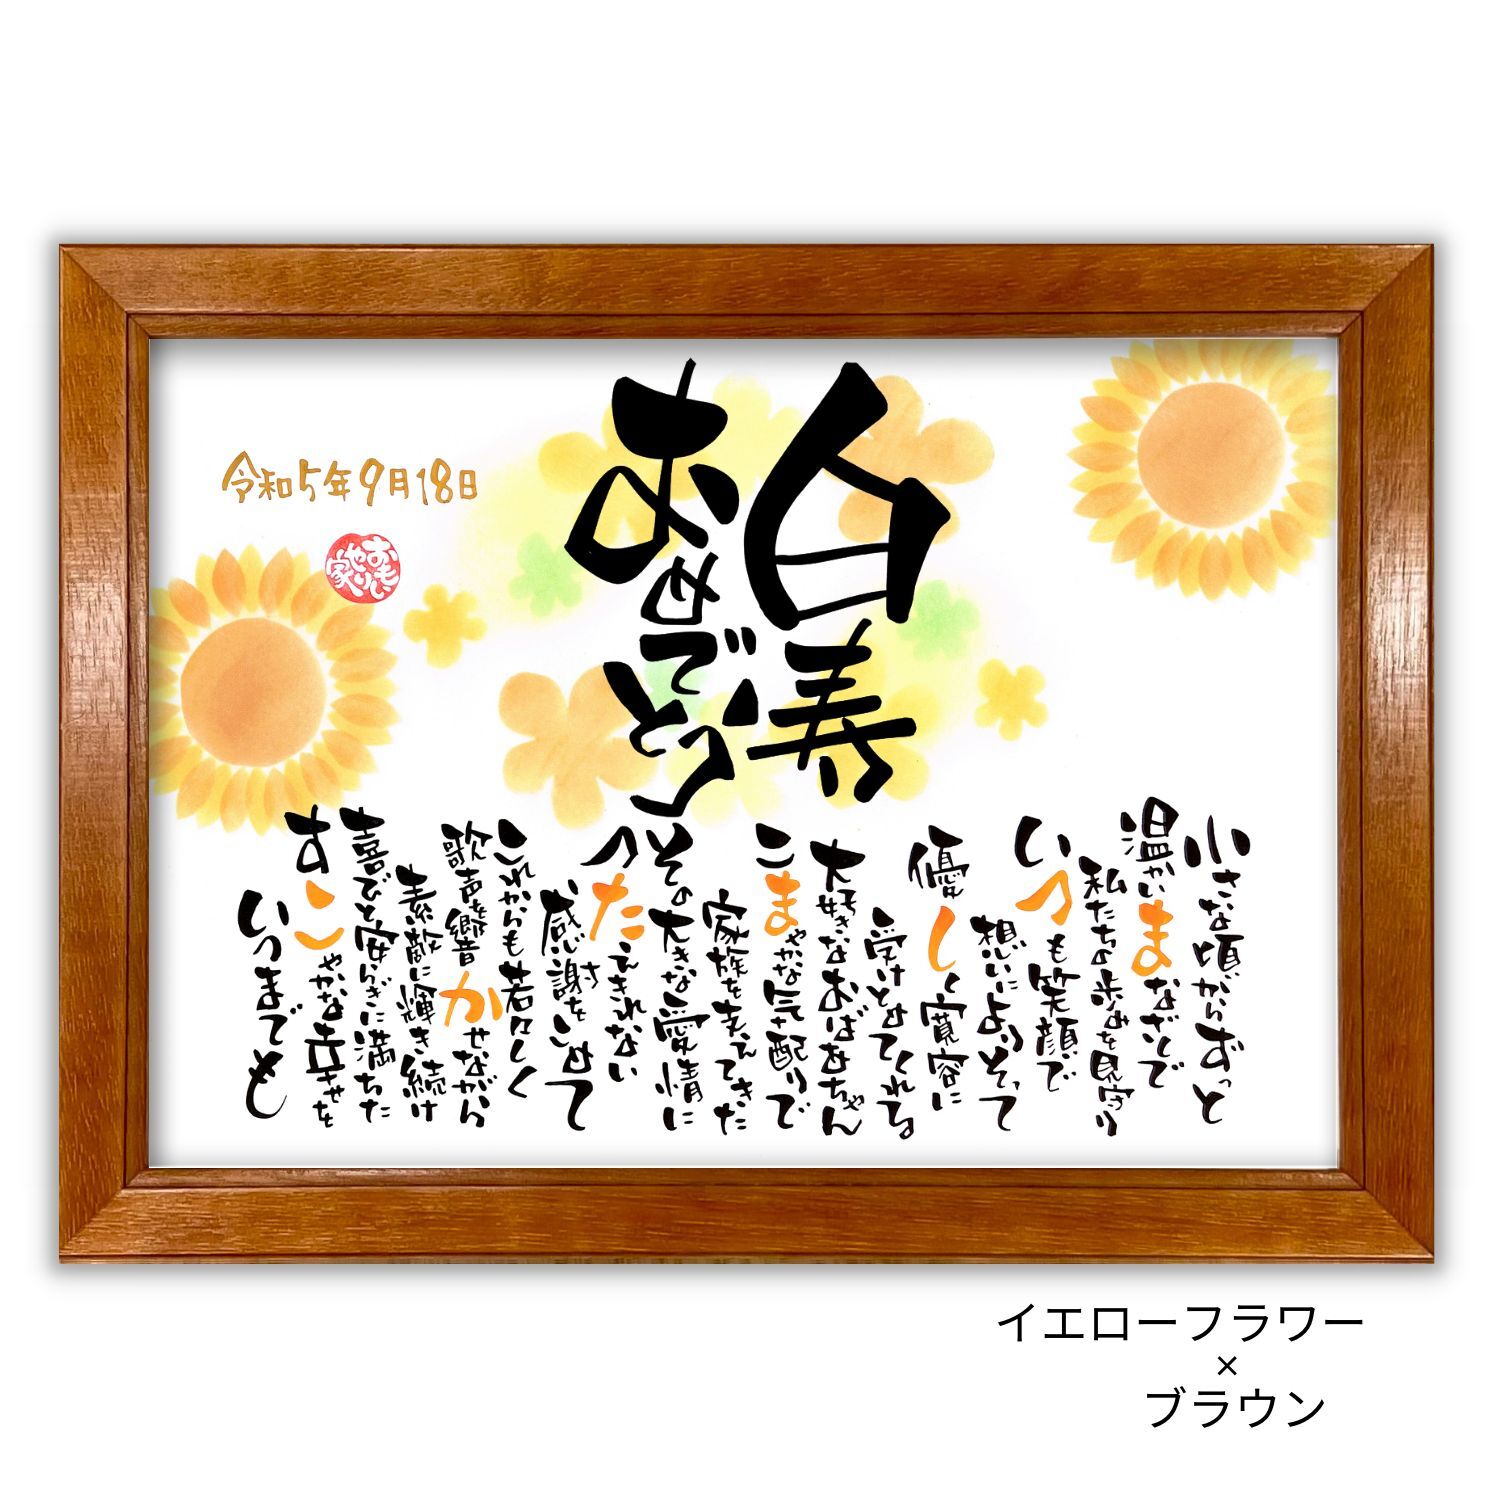 白寿
おめでとう
令和5年9月18日
おもいやり家
小さな頃からずっと
温かいまなざしで
私たちの歩みを見守り
いつも笑顔で
想いによりそって
優しく寛容に
受けとめてくれる
大好きなおばあちゃん
こまやかな気配りで
家族を支えてきた
その大きな愛情に
つたえきれない
感謝をこめて
これからも若々しく
歌声を響かせながら
素敵に輝き続け
喜びと安らぎに満ちた
すこやかな幸せを
いつまでも
イエローフラワー
×
ブラウン